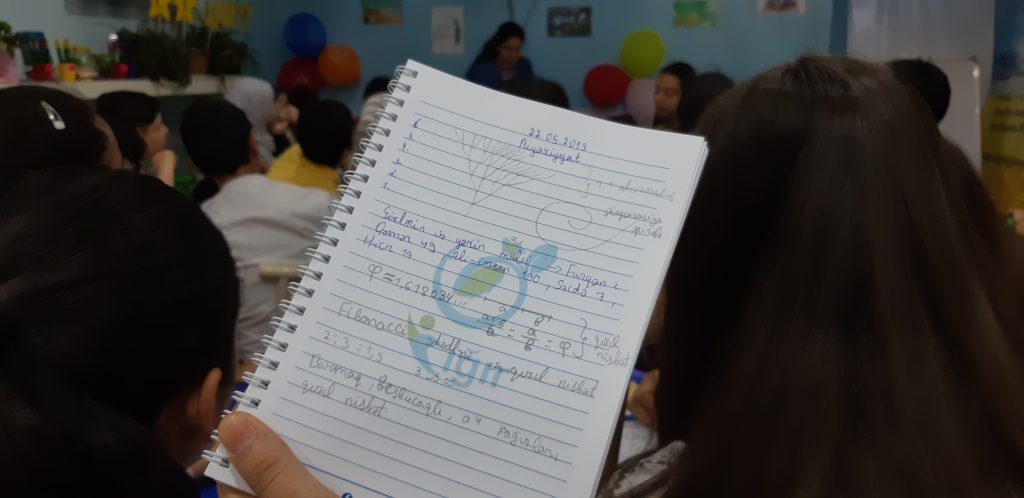 22.05.2019
Riyaziyyat
6
5.
4.
3.
2
1.
Göylərin və yerin mülkü → Furqan 1
Qəmər 49 Ali-imran 190, Səcdə 7,
Hicr 19
φ ≈ 1,618034...
a+b/a = a/b = φ } qızıl nisbət
Fibonacci ədədləri və qızıl nisbət
2:3=1,5
Barmaq, Beşbucaqlı,
qızıl nisbət